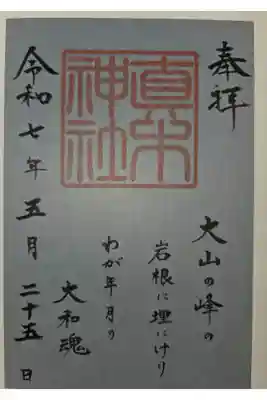 奉拝
真木
神社
大山の峰の
岩根に埋にけり
わが年月の
大和魂
令和七年五月二十五日